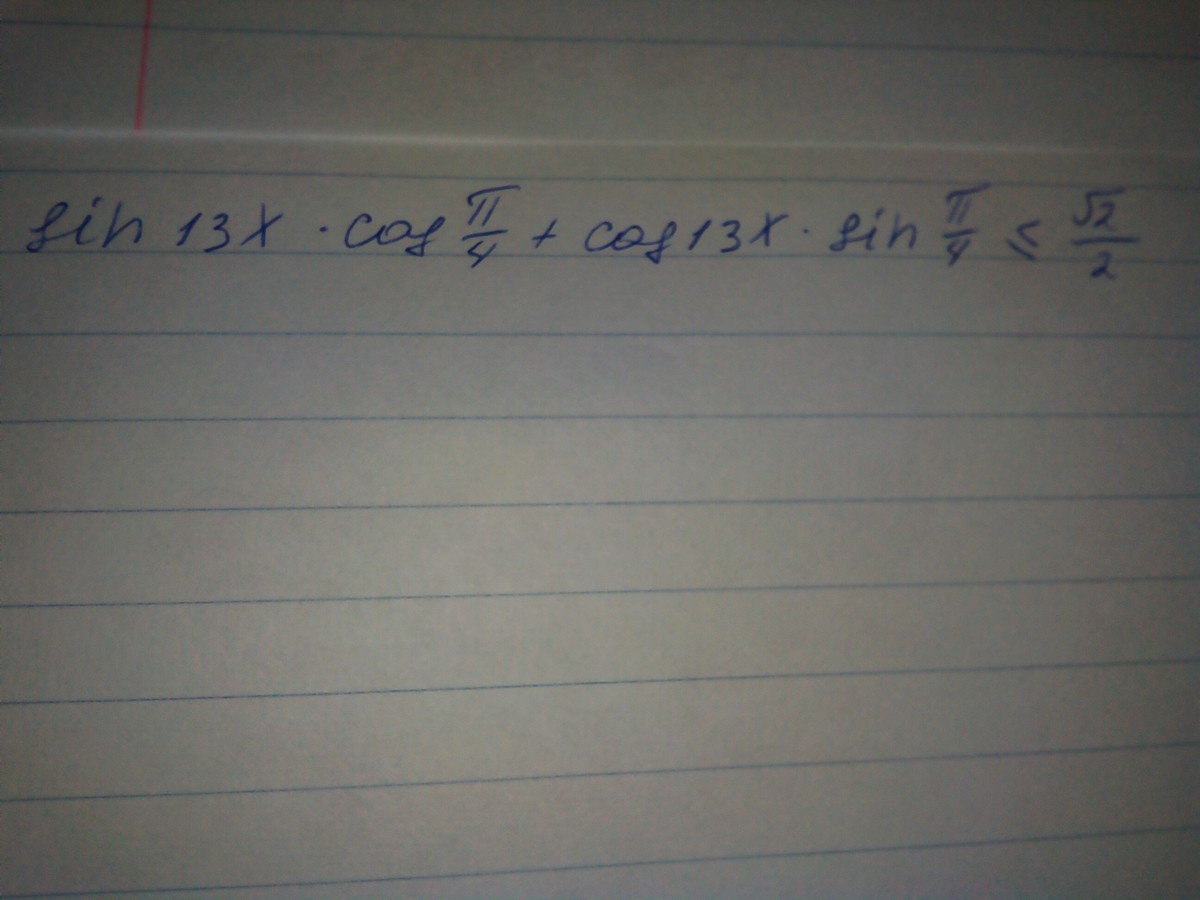 sin 13x · cos π/4 + cos 13x · sin π/4 ≤ √2/2